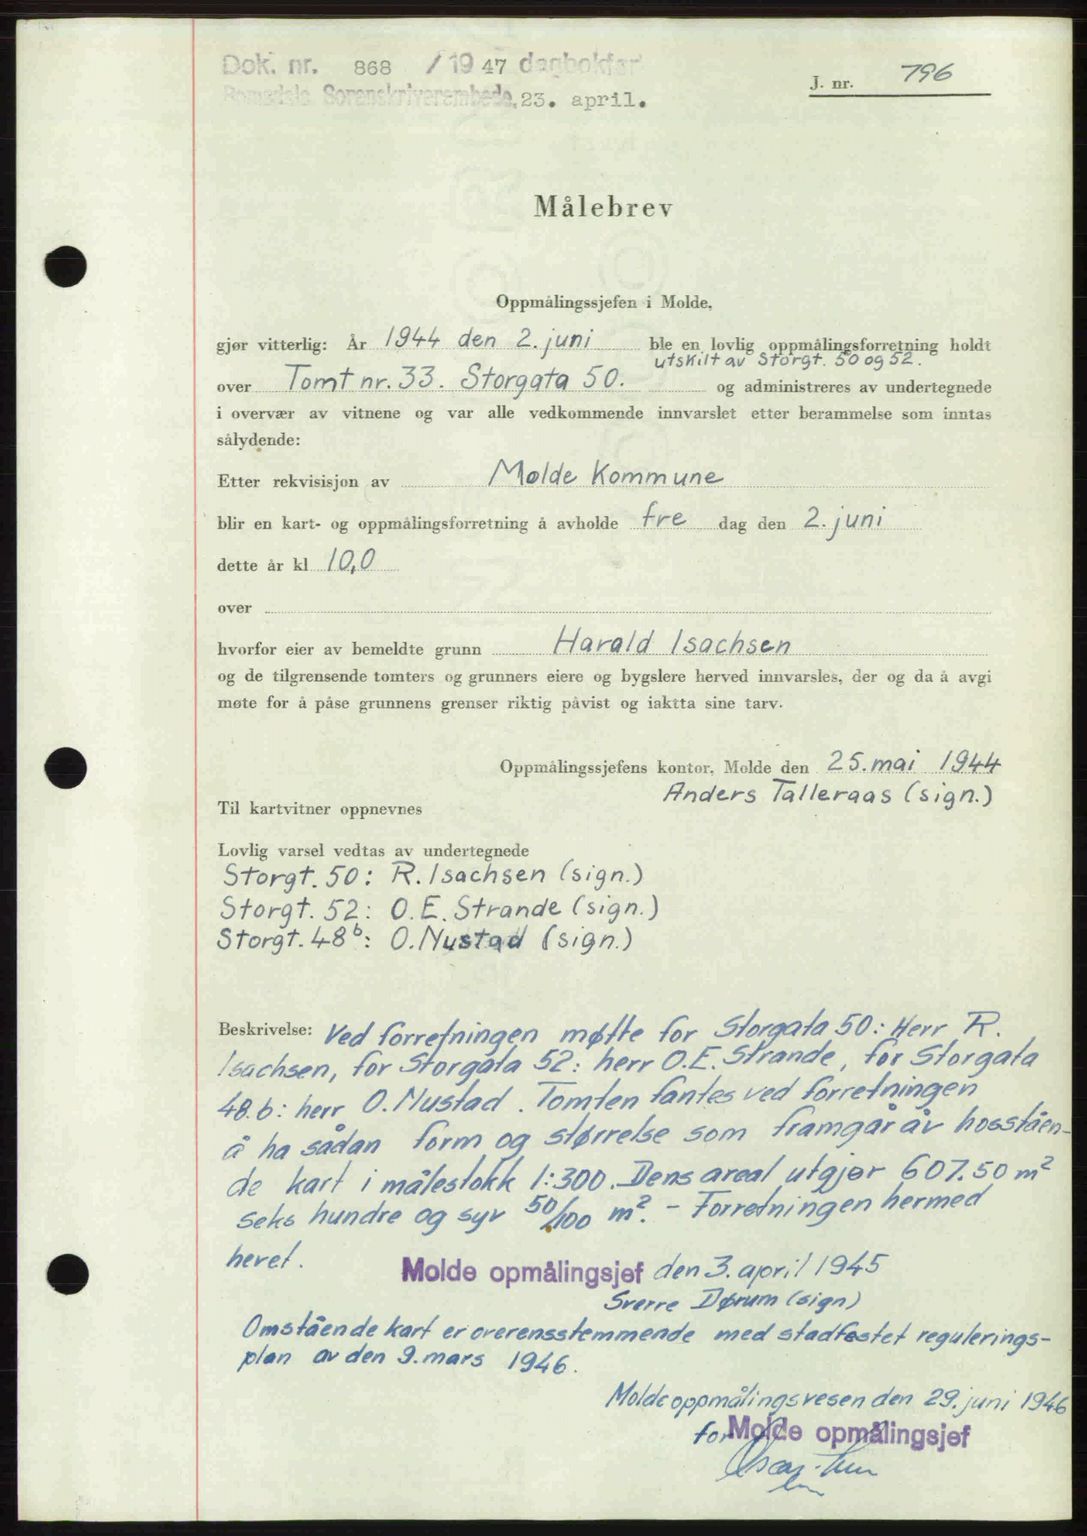 Dok. nr. 868 / 19 47 dagbokført
Romsdals Sorenskriverembede, 23. april.
J. nr. 796
Målebrev
Oppmålingssjefen i Molde,
gjør vitterlig: År 1944 den 2. juni ble en lovlig oppmålingsforretning holdt
utskilt av Storgt. 50 og 52.
over Tomt nr. 33. Storgata 50. og administreres av undertegnede
i overvær av vitnene og var alle vedkommende innvarslet etter berammelse som inntas
sålydende:
Etter rekvisisjon av Molde Kommune
blir en kart- og oppmålingsforretning å avholde fre dag den 2. juni
dette år kl 10,0
over
hvorfor eier av bemeldte grunn Harald Isachsen
og de tilgrensende tomters og grunners eiere og bygslere herved innvarsles, der og da å avgi
møte for å påse grunnens grenser riktig påvist og iaktta sine tarv.
Oppmålingssjefens kontor, Molde den 25. mai 1944
Anders Talleraas (sign.)
Til kartvitner oppnevnes
Lovlig varsel vedtas av undertegnede
Storgt. 50: R. Isachsen (sign.)
Storgt. 52: O. E. Strande (sign.)
Storgt. 48b: O. Nustad (sign.)
Beskrivelse: Ved forretningen møtte for Storgata 50: Herr R.
Isachsen, for Storgata 52: herr O.E. Strande, for Storgata
48.b: herr O. Nustad. Tomten fantes ved forretningen
å ha sådan form og størrelse som framgår av hosståen-
de kart i målestokk 1:300. Dens areal utgjør 607.50 m2
seks hundre og syv 50/100 m2. - Forretningen hermed
hevet.
Molde opmålingsjef den 3. april 1945
Sverre Dørum (sign)
Omstående kart er overensstemmende med stadfestet regulerings-
plan av den 9. mars 1946.
Molde oppmålingsvesen den 29. juni 1946
for Molde opmålingsjef